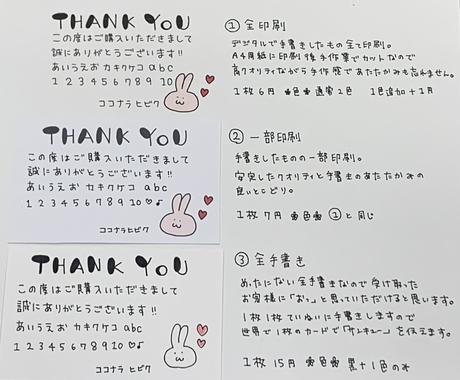 THANK YOU
この度はご購入いただきまして
誠にありがとうございます!!
あいうえお カキクケコ abc
1 2 3 4 5 6 7 8 9 10
ココナラ ヒビク
① 全印刷
デジタルで手書きしたもの全て印刷。
A4用紙に印刷後手作業でカットなので
高クオリティながら手作感であたたかみも忘れません。
1枚6円 ●色● 通常2色 1色追加+1円
THANK YOU
この度はご購入いただきまして
誠にありがとうございます!!
あいうえお カキクケコ abc
1 2 3 4 5 6 7 8 9 10♡♪
ココナラ ヒビク
② 一部印刷
手書きしたものの一部印刷。
安定したクオリティと手書きのあたたかみの
良いとこどり。
1枚7円 ●色● ①と同じ
THANK YOU
この度はご購入いただきまして
誠にありがとうございます!!
あいうえお カキクケコ abc
1 2 3 4 5 6 7 8 9 10♡♪
ココナラ ヒビク
③ 全手書き
めったにない全手書きなので受け取った
お客様に「おっ」と思っていただけると思います。
1枚1枚ていねいに手書きしますので
世界で1枚のカードで「サンキュー」を伝えます。
1枚15円 ●色● 黒+1色のみ